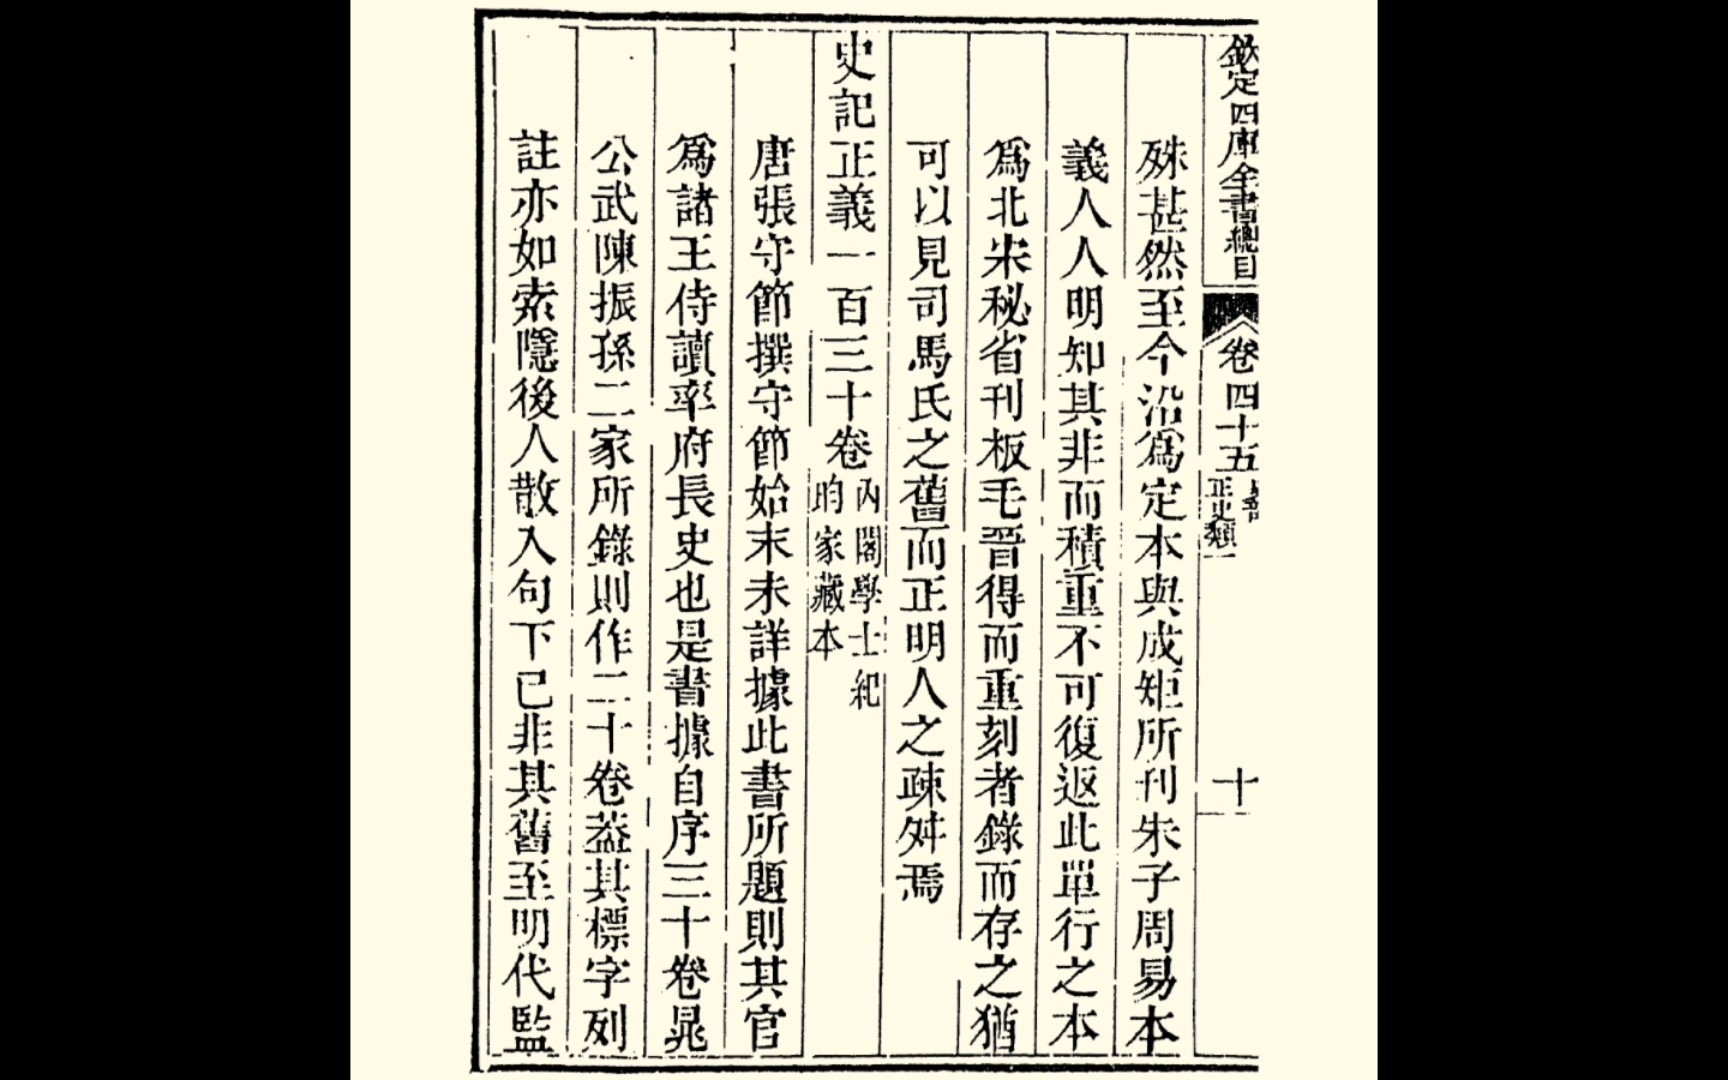 欽定四庫全書總目
卷四十五
正史類一
十
殊甚然至今沿爲定本與成矩所刊朱子周易本
義人人明知其非而積重不可復返此單行之本
爲北宋秘省刊板毛晉得而重刻者錄而存之猶
可以見司馬氏之舊而正明人之疎舛焉
史記正義一百三十卷
內閣學士紀
昀家藏本
唐張守節撰守節始末未詳據此書所題則其官
爲諸王侍讀率府長史也是書據自序三十卷晁
公武陳振孫二家所錄則作二十卷葢其標字列
註亦如索隱後人散入句下已非其舊至明代監